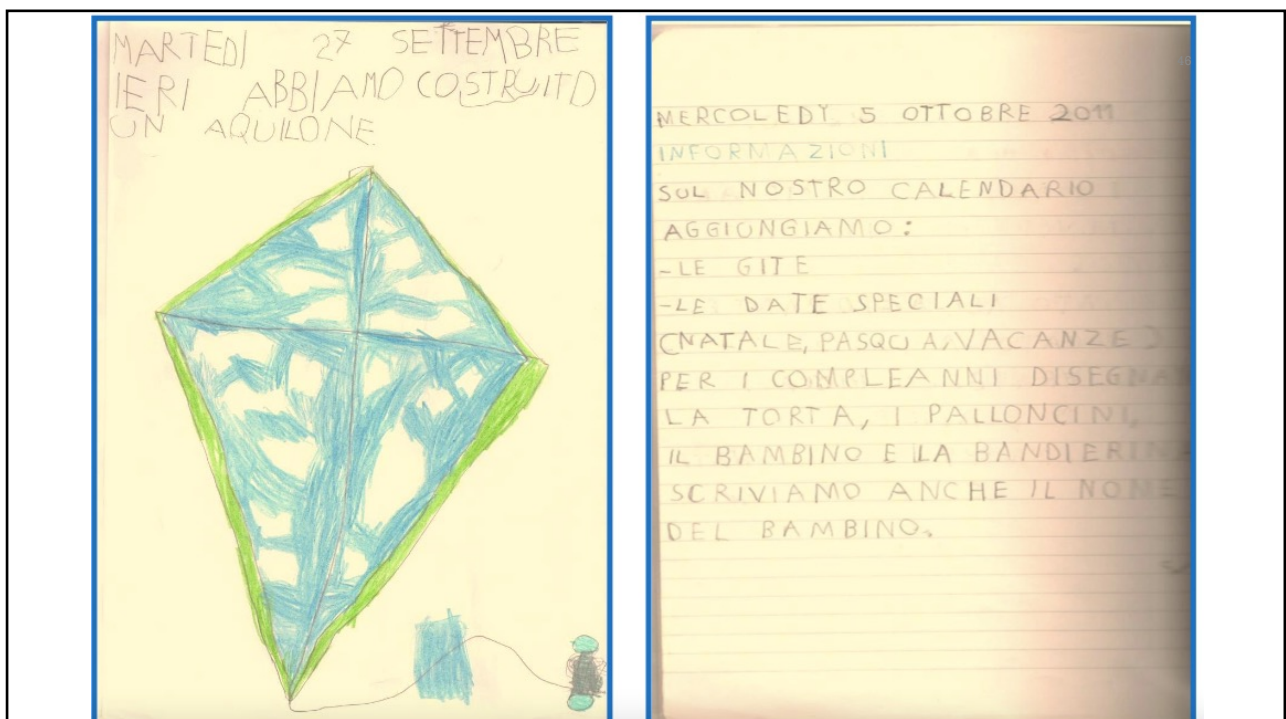 MARTEDI 27 SETTEMBRE
IERI ABBIAMO COSTRUITO
UN AQUILONE
MERCOLEDÌ 5 OTTOBRE 2011
INFORMAZIONI
SUL NOSTRO CALENDARIO
AGGIUNGIAMO:
-LE GITE
-LE DATE SPECIALI
(NATALE, PASQUA, VACANZE)
PER I COMPLEANNI
LA TORTA, I PALLONCINI,
IL BAMBINO E LA
SCRIVIAMO ANCHE IL NOME
DEL BAMBINO.